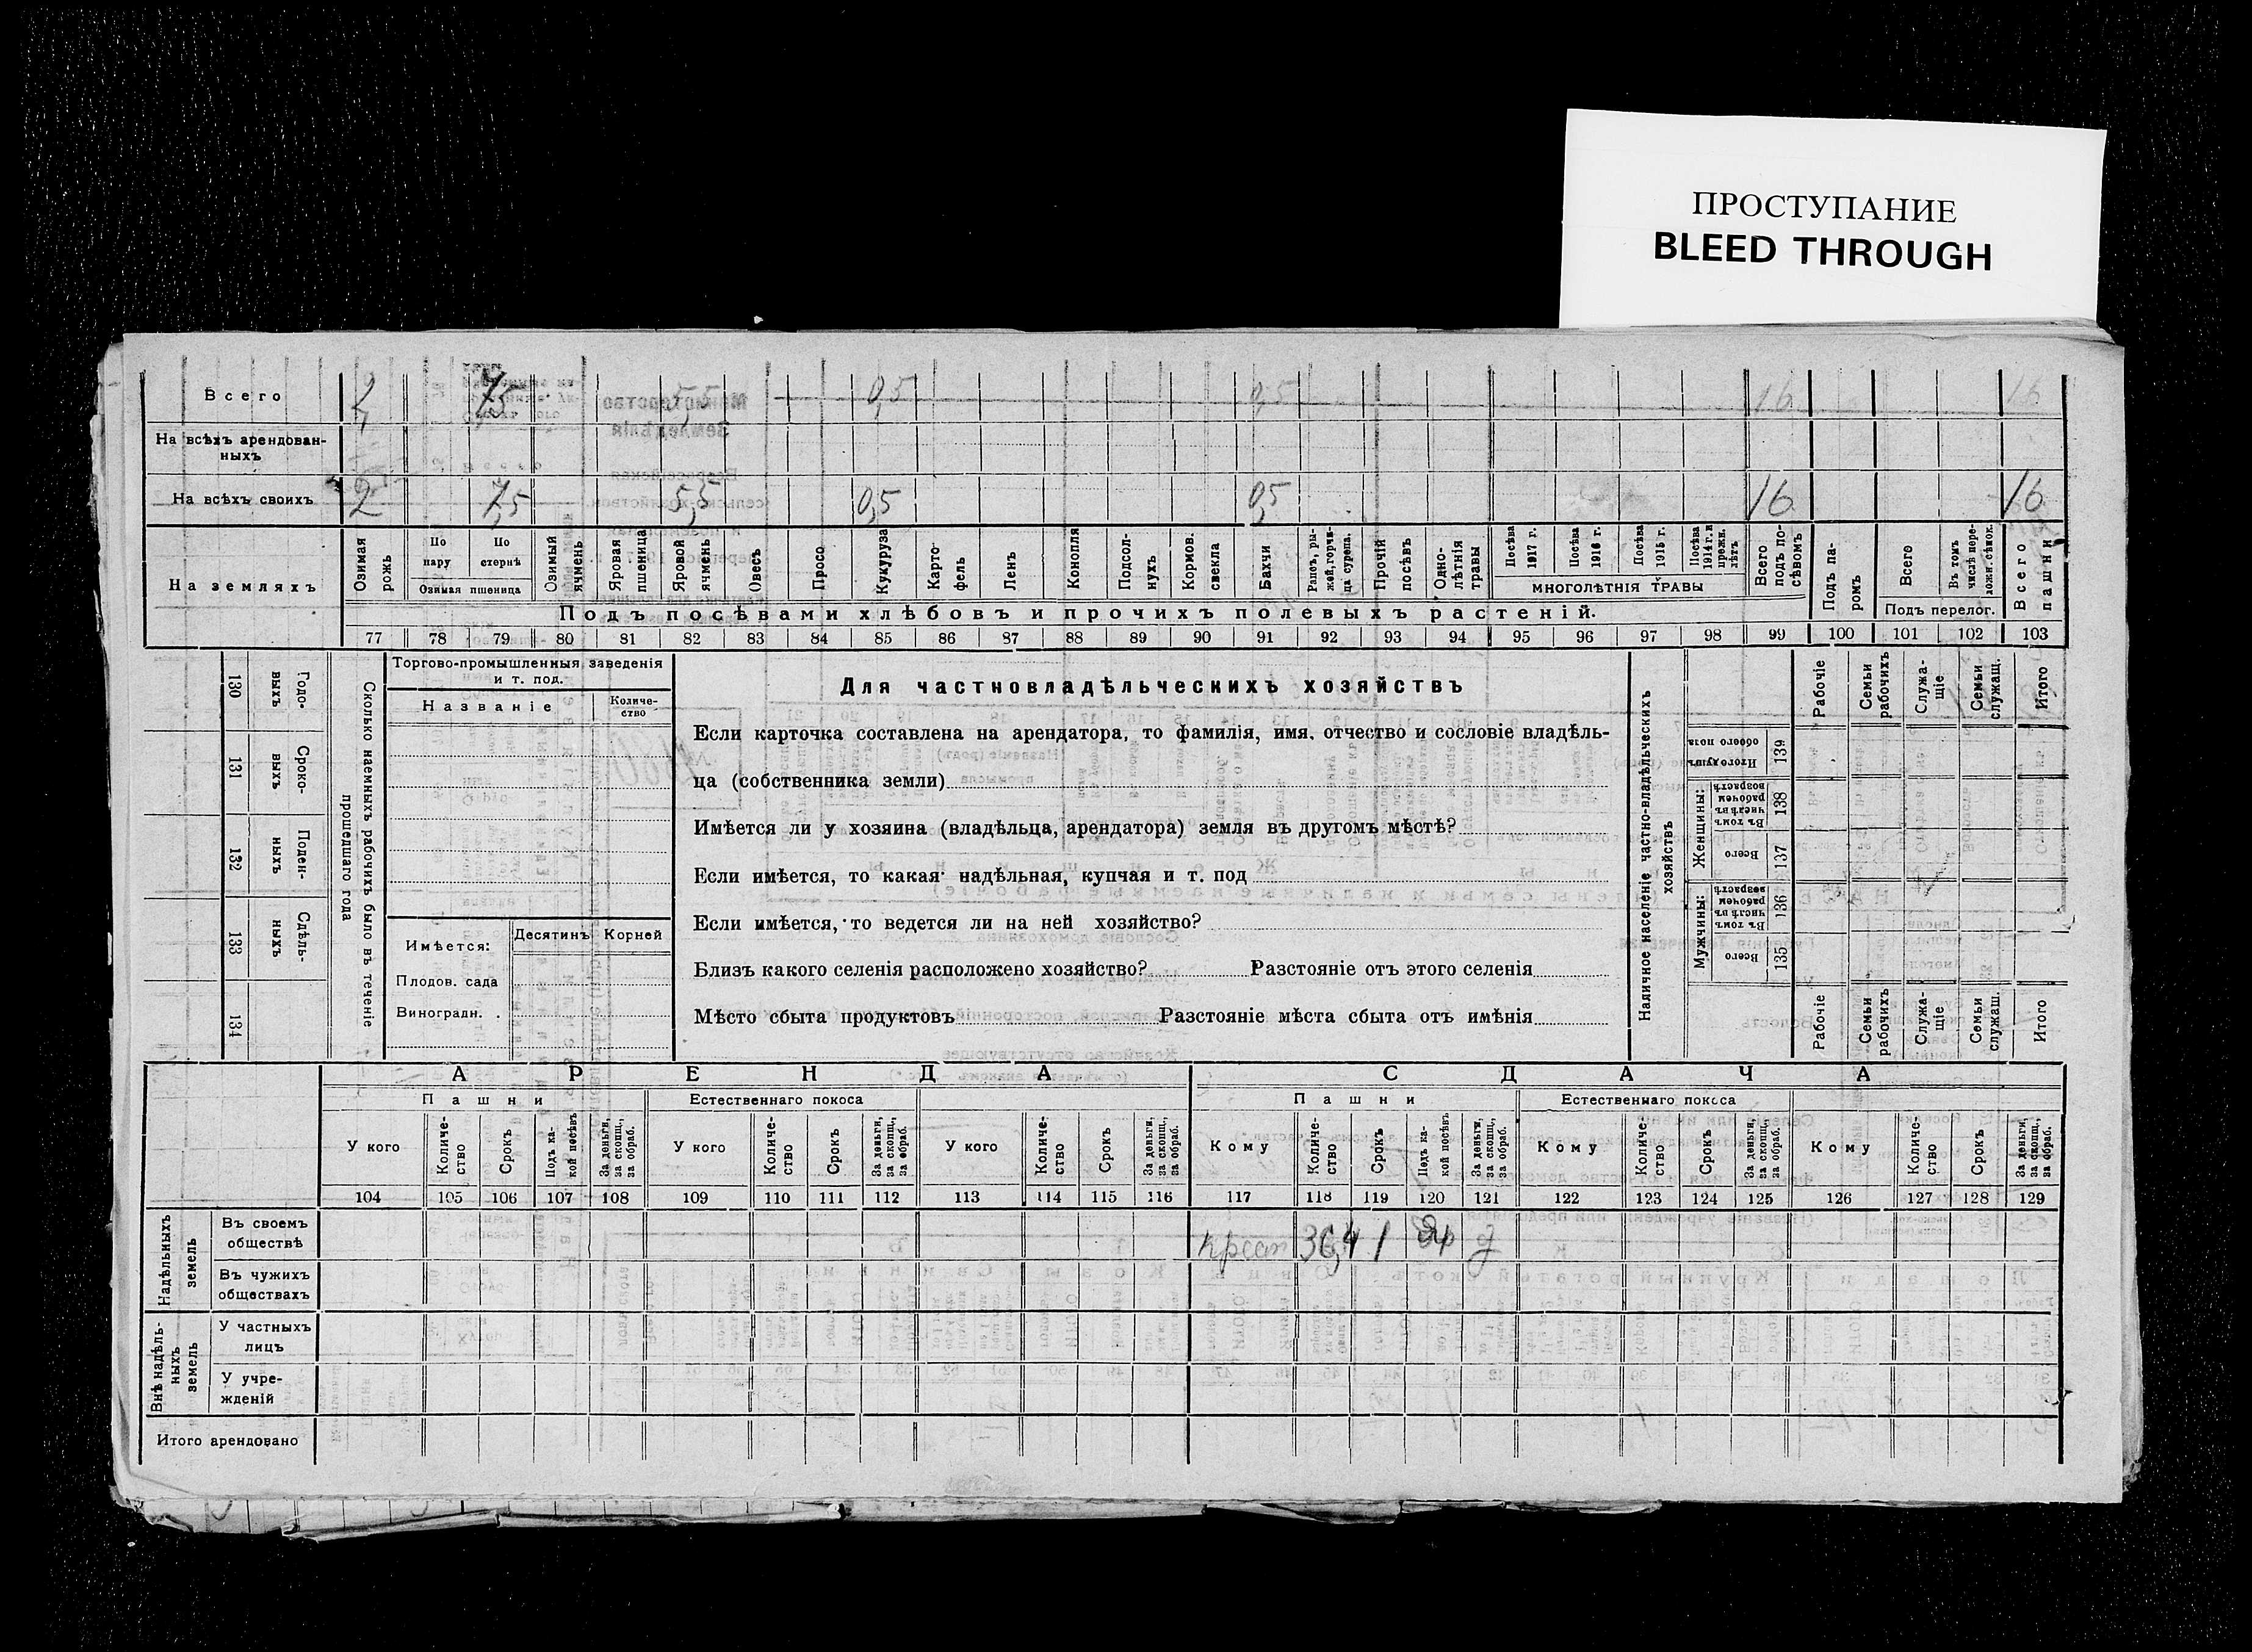 ПРОСТУПАНИЕ
BLEED THROUGH
Всего 2, 7,5 5,5 0,5 0,5 16 16
На всѣхъ арендован-
ныхъ
На всѣхъ своихъ 2 7,5 5,5 0,5 0,5 16 16
На земляхъ
Озимая рожь
По пару
По стернѣ
Озимая пшеница
Озимый ячмень
Яровая пшеница
Яровой ячмень
Овесъ
Просо
Кукуруза
Карто-фель
Ленъ
Конопля
Подсол-нухъ
Кормов. свекла
Бахчи
Рапсъ, ры-жей, горчи-ца сурепа.
Прочій посѣвъ
Одно-лѣтнія травы
Посѣва 1917 г.
Посѣва 1916 г.
Посѣва 1915 г.
Посѣва 1914 г. и прежн. лѣтъ
МНОГОЛѢТНІЯ ТРАВЫ
Всего подъ по-сѣвомъ
Подъ па-ромъ
Всего
Въ томъ числѣ пере-ложн. сѣнок.
Подъ перелог.
Всего пашни
Подъ посѣвами хлѣбовъ и прочихъ полевыхъ растеній.
77 78 79 80 81 82 83 84 85 86 87 88 89 90 91 92 93 94 95 96 97 98 99 100 101 102 103
130 Годо-выхъ
131 Сроко-выхъ
132 Поден-ныхъ
133 Сдѣль-ныхъ
134
Сколько наемныхъ рабочихъ было въ теченіе
прошедшаго года
Торгово-промышленныя заведенія
и т. под.
Названіе
Количе-ство
Имѣется:
Десятинъ Корней
Плодов. сада
Виноградн.
Для частновладѣльческихъ хозяйствъ
Если карточка составлена на арендатора, то фамилія, имя, отчество и сословіе владѣль-
ца (собственника земли)
Имѣется ли у хозяина (владѣльца, арендатора) земля въ другомъ мѣстѣ?
Если имѣется, то какая: надѣльная, купчая и т. под
Если имѣется, то ведется ли на ней хозяйство?
Близъ какого селенія расположено хозяйство? Разстояніе отъ этого селенія
Мѣсто сбыта продуктовъ Разстояніе мѣста сбыта отъ имѣнія
Наличное населеніе частно-владѣльческихъ
хозяйствъ
Рабочіе
Семьи рабочихъ
Служа-щіе
Семьи служащ.
Итого
Итого душъ обоего пола 139
Женщины:
Въ томъ числѣ въ рабочемъ возрастѣ 138
Всего 137
Мужчины:
Въ томъ числѣ въ рабочемъ возрастѣ 136
Всего 135
Рабочіе
Семьи рабочихъ
Служа-щіе
Семьи служащ.
Итого
АРЕНДА СДАЧА
Пашни Естественнаго покоса Пашни Естественнаго покоса
У кого
Количе-ство
Срокъ
Подъ ка-кой посѣвъ
За деньги, за скопщ., за обраб.
У кого
Количе-ство
Срокъ
За деньги, за скопщ., за обраб.
У кого
Количе-ство
Срокъ
За деньги, за скопщ., за обраб.
Кому
Количе-ство
Срокъ
Подъ ка-кой посѣвъ
За деньги, за скопщ., за обраб.
Кому
Количе-ство
Срокъ
За деньги, за скопщ., за обраб.
Кому
Количе-ство
Срокъ
За деньги, за скопщ., за обраб.
104 105 106 107 108 109 110 111 112 113 114 115 116 117 118 119 120 121 122 123 124 125 126 127 128 129
Надѣльныхъ
земель
Въ своемъ
обществѣ 36,4 1 д
Въ чужихъ
обществахъ
Внѣ надѣль-
ныхъ
земель
У частныхъ
лицъ
У учре-
жденій
Итого арендовано